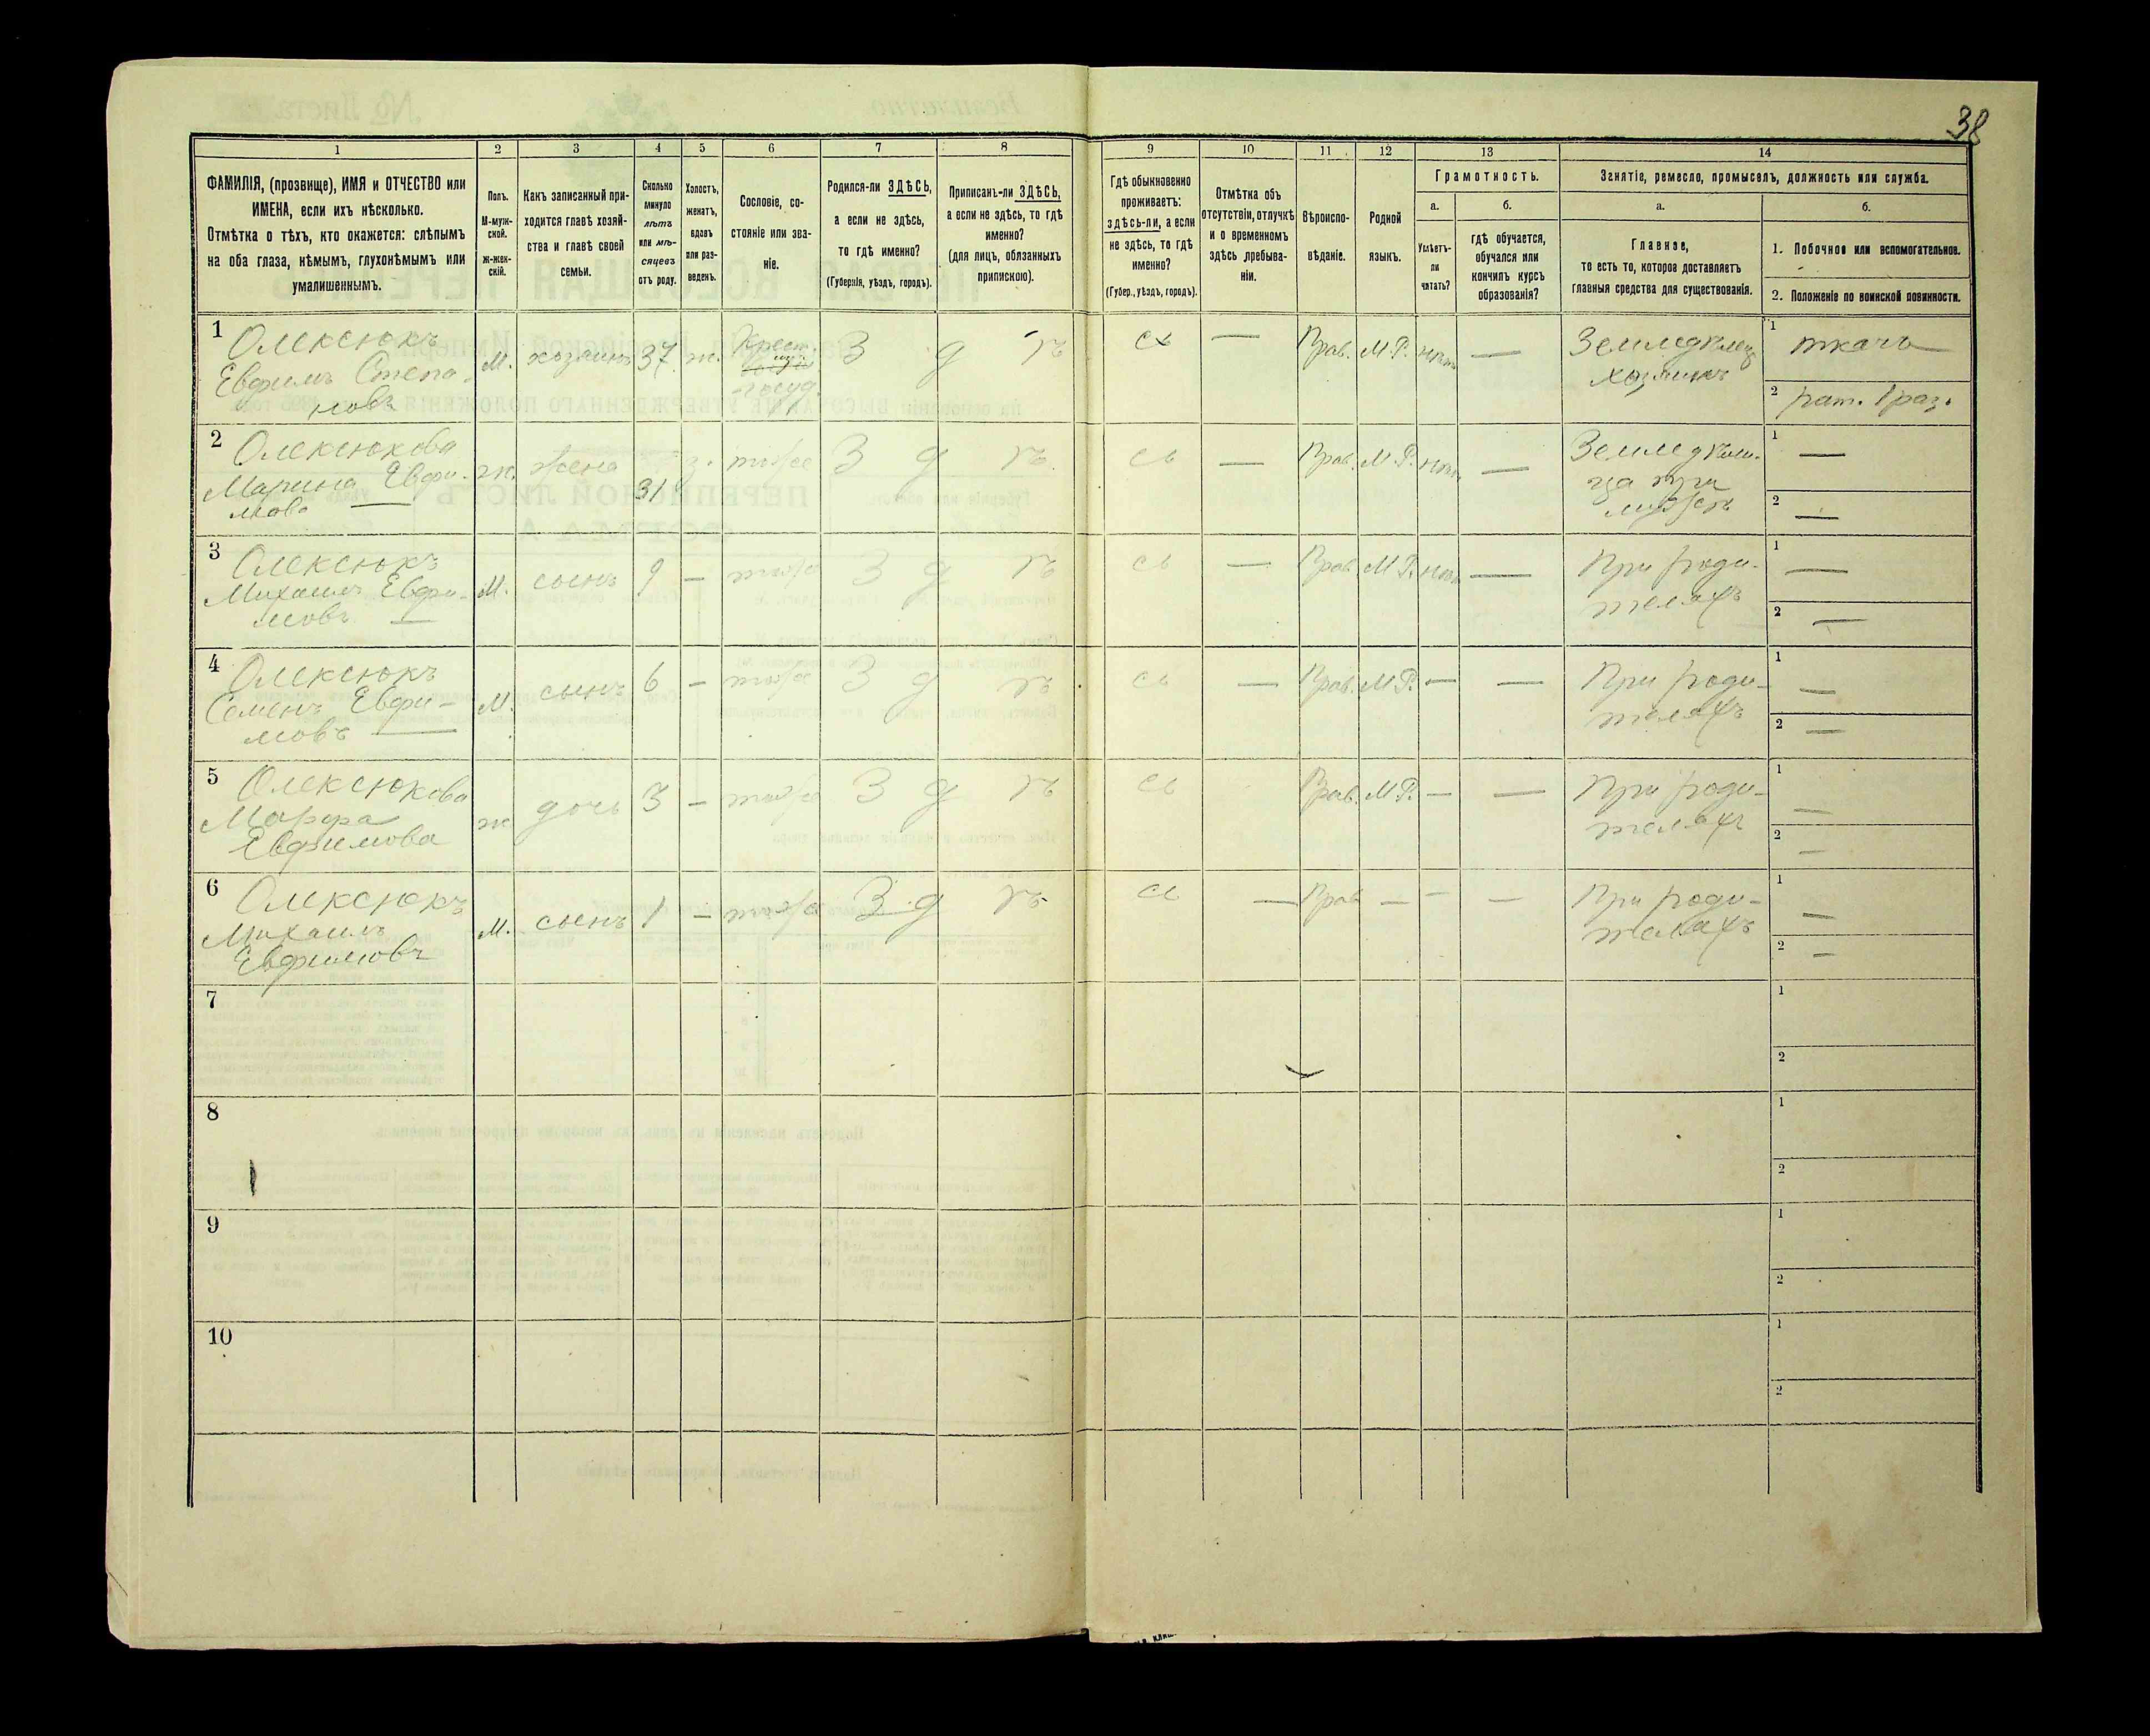 38
1
2
3
4
5
6
7
8
9
10
11
12
13
14
ФАМИЛІЯ, (прозвище), ИМЯ и ОТЧЕСТВО или
ИМЕНА, если ихъ нѣсколько.
Отмѣтка о тѣхъ, кто окажется: слѣпымъ
на оба глаза, нѣмымъ, глухонѣмымъ или
умалишеннымъ.
Полъ.
М-муж-
ской.
Ж-жен-
скій.
Какъ записанный при-
ходится главѣ хозяй-
ства и главѣ своей
семьи.
Сколько
минуло
лѣтъ
или мѣ-
сяцевъ
отъ роду.
Холостъ,
женатъ,
вдовъ
или раз-
веденъ.
Сословіе, со-
стояніе или зва-
ніе.
Родился-ли ЗДѢСЬ,
а если не здѣсь,
то гдѣ именно?
(Губернія, уѣздъ, городъ).
Приписанъ-ли ЗДѢСЬ,
а если не здѣсь, то гдѣ
именно?
(для лицъ, обязанныхъ
припискою).
Гдѣ обыкновенно
проживаетъ:
здѣсь-ли, а если
не здѣсь, то гдѣ
именно?
(Губер., уѣздъ, городъ).
Отмѣтка объ
отсутствіи, отлучкѣ
и о временномъ
здѣсь пребыва-
ніи.
Вѣроиспо-
вѣданіе.
Родной
языкъ.
Грамотность.
а.
Умѣетъ-
ли
читать?
б.
гдѣ обучается,
обучался или
кончилъ курсъ
образованія?
Занятіе, ремесло, промыселъ, должность или служба.
а.
Главное,
то есть то, которое доставляетъ
главныя средства для существованія.
б.
1. Побочное или вспомогательное.
2. Положеніе по воинской повинности.
1
Олексюкъ
Евфимъ Степа-
новъ
М. хозяинъ 37 ж.
Крест.
госуд
З д ѣ сь — Прав. М.Р. нѣтъ —
Земледѣлецъ
хозяинъ
1 ткачъ
2 рат. 1 раз.
2
Олексюкова
Марина Евфи-
мова —
ж. жена 31 з. тоже З д ѣ сь — Прав. М.Р. нѣтъ —
Земледѣли-
ца при
мужѣ
1 —
2 —
3
Олексюкъ
Михаилъ Евфи-
мовъ —
М. сынъ 9 — тоже З д ѣ сь — Прав. М.Р. нѣтъ —
При роди-
теляхъ
1 —
2 —
4
Олексюкъ
Семенъ Евфи-
мовъ —
М. сынъ 6 — тоже З д ѣ сь — Прав. М.Р. — —
При роди-
теляхъ
1 —
2 —
5
Олексюкова
Марфа
Евфимова
ж дочь 3 — тоже З д ѣ сь Прав. М.Р. — —
При роди-
теляхъ
1 —
2 —
6
Олексюкъ
Михаилъ
Евфимовъ
М. сынъ 1 — тоже З д ѣ сь — Прав — — —
При роди-
теляхъ
1 —
2 —
7
1
2
8
1
2
9
1
2
10
1
2